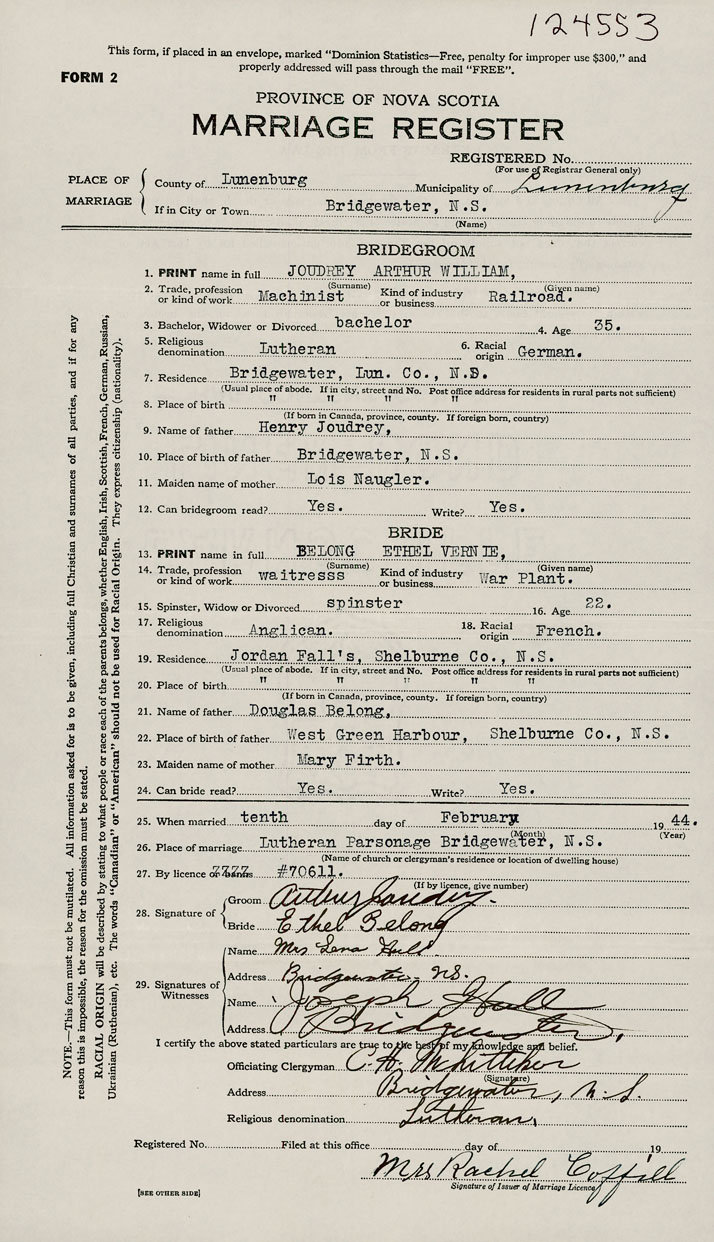 124553
This form, if placed in an envelope, marked "Dominion Statistics—Free, penalty for improper use $300," and
properly addressed will pass through the mail "FREE".
FORM 2
PROVINCE OF NOVA SCOTIA
MARRIAGE REGISTER
REGISTERED No.
(For use of Registrar General only)
PLACE OF MARRIAGE
County of Lunenburg Municipality of Lunenburg
If in City or Town Bridgewater, N.S.
(Name)
BRIDEGROOM
1. PRINT name in full JOUDREY ARTHUR WILLIAM,
(Surname) (Given name)
2. Trade, profession or kind of work Machinist Kind of industry or business Railroad.
3. Bachelor, Widower or Divorced bachelor 4. Age 35.
5. Religious denomination Lutheran 6. Racial origin German.
7. Residence Bridgewater, Lun. Co., N.S.
(Usual place of abode. If in city, street and No. Post office address for residents in rural parts not sufficient)
8. Place of birth " " " "
(If born in Canada, province, county. If foreign born, country)
9. Name of father Henry Joudrey,
10. Place of birth of father Bridgewater, N.S.
11. Maiden name of mother Lois Naugler.
12. Can bridegroom read? Yes. Write? Yes.
BRIDE
13. PRINT name in full BELONG ETHEL VERNIE,
(Surname) (Given name)
14. Trade, profession or kind of work waitresss Kind of industry or business War Plant.
15. Spinster, Widow or Divorced spinster 16. Age 22.
17. Religious denomination Anglican. 18. Racial origin French.
19. Residence Jordan Fall's, Shelburne Co., N.S.
(Usual place of abode. If in city, street and No. Post office address for residents in rural parts not sufficient)
20. Place of birth " " " " "
(If born in Canada, province, county. If foreign born, country)
21. Name of father Douglas Belong,
22. Place of birth of father West Green Harbour, Shelburne Co., N.S.
23. Maiden name of mother Mary Firth.
24. Can bride read? Yes. Write? Yes.
25. When married tenth day of February 1944.
(Month) (Year)
26. Place of marriage Lutheran Parsonage Bridgewater, N.S.
(Name of church or clergyman's residence or location of dwelling house)
27. By licence or banns #70611.
(If by licence, give number)
28. Signature of
Groom Arthur Joudrey.
Bride Ethel Belong
29. Signatures of Witnesses
Name Mrs Lena Hall
Address Bridgewater N.S.
Name Joseph Hall
Address Bridgewater,
I certify the above stated particulars are true to the best of my knowledge and belief.
Officiating Clergyman C. H. Whitteker
(Signature)
Address Bridgewater, N.S.
Religious denomination Lutheran,
Registered No. Filed at this office day of 19
Mrs Rachel Coffill
Signature of Issuer of Marriage Licence
[SEE OTHER SIDE]
NOTE.—This form must not be mutilated. All information asked for is to be given, including full Christian and surnames of all parties, and if for any
reason this is impossible, the reason for the omission must be stated.
RACIAL ORIGIN will be described by stating to what people or race each of the parents belongs, whether English, Irish, Scottish, French, German, Russian,
Ukrainian (Ruthenian), etc. The words "Canadian" or "American" should not be used for Racial Origin. They express citizenship (nationality).